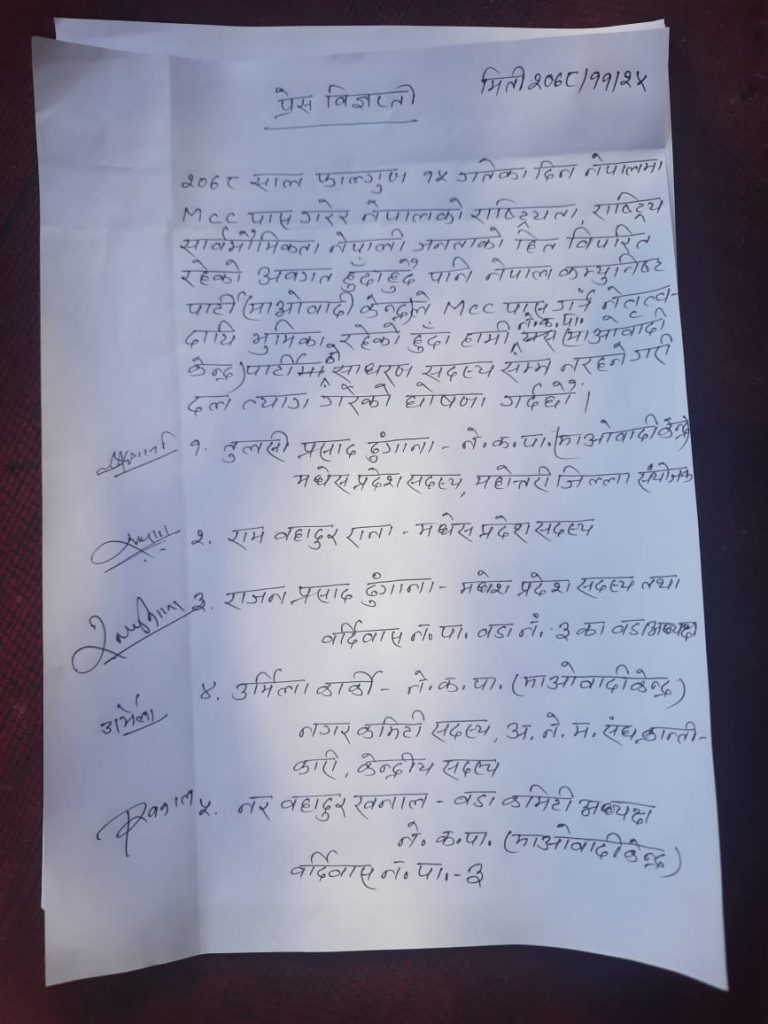 प्रेस विज्ञप्ती
मिती २०७८/११/२५
२०७८ साल फाल्गुण १५ गतेका दिन नेपालमा
MCC पास गरेर नेपालको राष्ट्रियता, राष्ट्रिय
सार्वभौमिकता नेपाली जनताको हित विपरित
रहेको अवगत हुँदाहुदै पनि नेपाल कम्युनिष्ट
पार्टी (माओवादी केन्द्र)ले MCC पास गर्न नेतृत्व-
दायि भुमिका रहेको हुँदा हामी ने.क.पा. (माओवादी
केन्द्र) पार्टीको साधरण सदस्य सम्म नरहने गरी
दल त्याग गरेको घोषणा गर्दछौं।
१. तुलसी प्रसाद ढुंगाना - ने.क.पा. (माओवादी केन्द्र)
मधेस प्रदेश सदस्य, महोत्तरी जिल्ला संयोजक
२. राम वहादुर राना - मधेस प्रदेश सदस्य
३. राजन प्रसाद ढुंगाना - मधेश प्रदेश सदस्य तथा
वर्दिवास न.पा. वडा नं. ३ का वडा अध्यक्ष
४. उर्मिला कार्की - ने.क.पा. (माओवादी केन्द्र)
उर्मिला
नगर कमिटी सदस्य, अ.ने.म. संघ क्रान्ती-
कारी, केन्द्रीय सदस्य
५. नर वहादुर खनाल - वडा कमिटी अध्यक्ष
ने.क.पा. (माओवादी केन्द्र)
वर्दिवास न.पा.-३